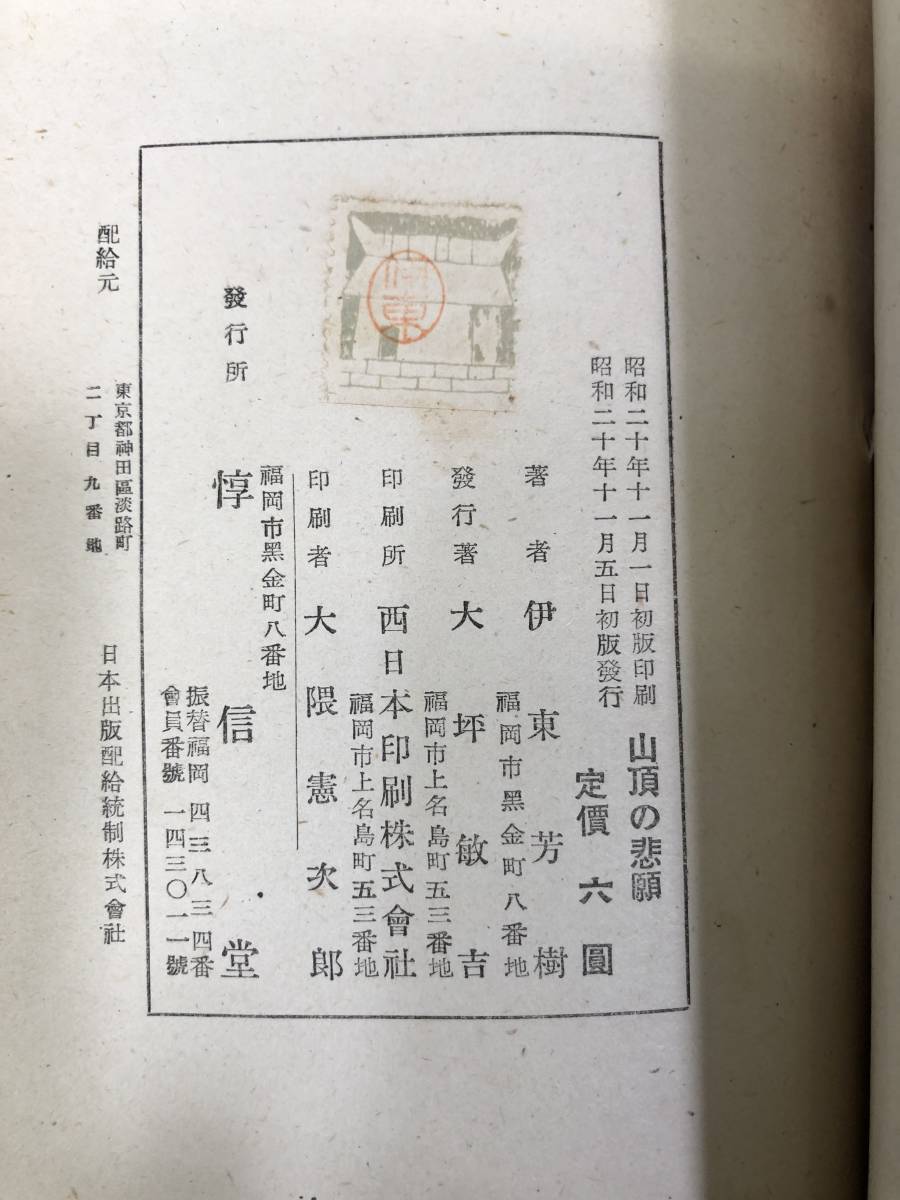 昭和二十年十一月一日初版印刷
昭和二十年十一月五日初版發行
山頂の悲願
定價 六圓
著者 伊東芳樹
福岡市黑金町八番地
發行著 大坪敏吉
福岡市上名島町五三番地
印刷所 西日本印刷株式會社
福岡市上名島町五三番地
印刷者 大隈憲次郎
福岡市黑金町八番地
發行所 惇信堂
振替福岡四三八三四番
會員番號 一四三〇一一號
配給元 東京都神田區淡路町
二丁目九番地
日本出版配給統制株式會社